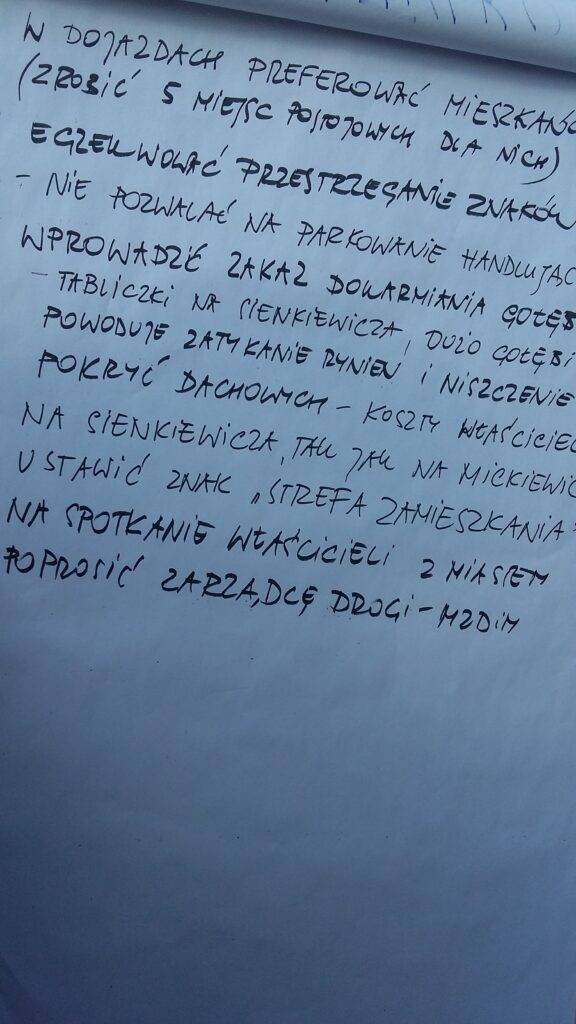 W DOJAZDACH PREFEROWAĆ MIESZKAŃC
(ZROBIĆ 5 MIEJSC POSTOJOWYCH DLA NICH)
EGZEKWOWAĆ PRZESTRZEGANIE ZNAKÓW
- NIE POZWALAĆ NA PARKOWANIE HANDLUJĄC
WPROWADZIĆ ZAKAZ DOKARMIANIA GOŁĘB
- TABLICZKI NA SIENKIEWICZA, DUŻO GOŁĘBI
POWODUJE ZATYKANIE RYNIEN I NISZCZENIE
POKRYĆ DACHOWYCH - KOSZTY WŁAŚCICIEL
NA SIENKIEWICZA, TAK JAK NA MICKIEWIC
USTAWIĆ ZNAK „STREFA ZAMIESZKANIA"
NA SPOTKANIE WŁAŚCICIELI Z MIASTEM
POPROSIĆ ZARZĄDCĘ DROGI - MZDIM